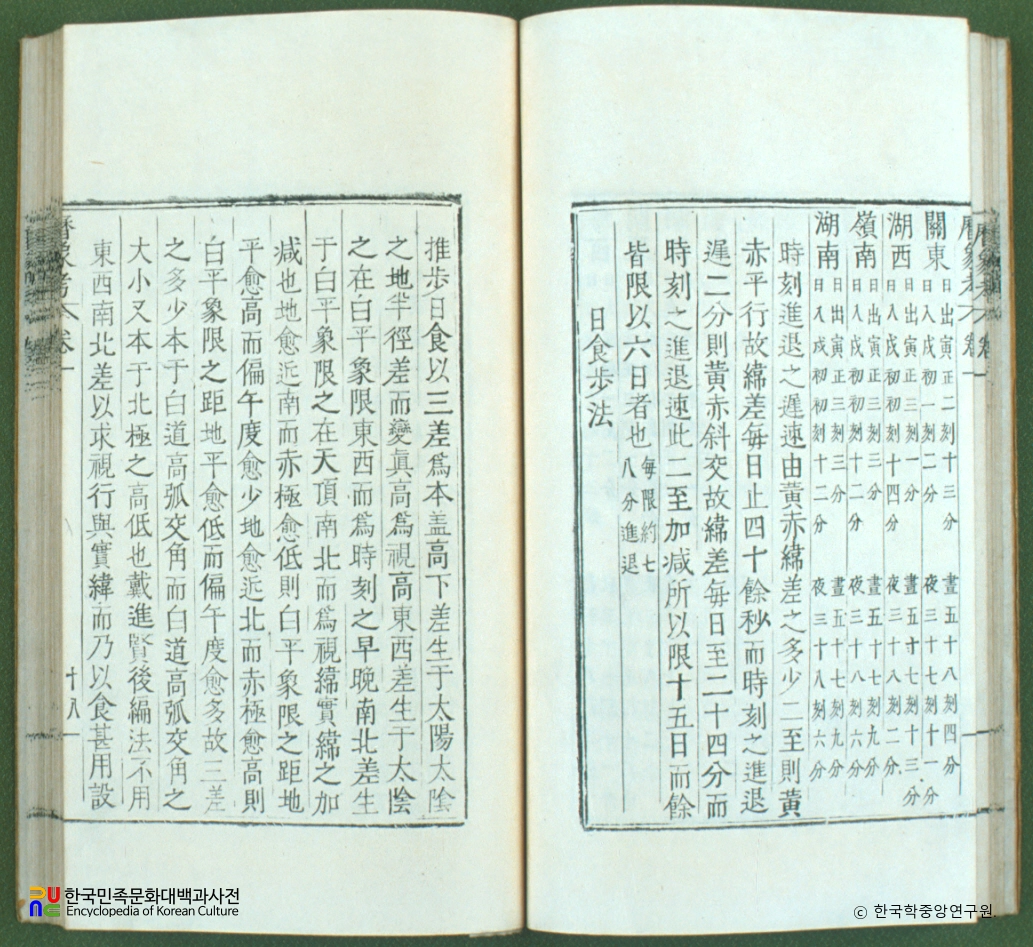 關東 日出寅正二刻十三分 晝五十八刻四分
日入戌初一刻二分 夜三十七刻十一分
湖西 日出寅正三刻一分 晝五十七刻十三分
日入戌初初刻十四分 夜三十八刻二分
嶺南 日出寅正三刻三分 晝五十七刻九分
日入戌初初刻十二分 夜三十八刻六分
湖南 日出寅正三刻三分 晝五十七刻九分
日入戌初初刻十二分 夜三十八刻六分
時刻進退之遲速由黃赤緯差之多少二至則黃
赤平行故緯差每日止四十餘秒而時刻之進退
遲二分則黃赤斜交故緯差每日至二十四分而
時刻之進退速此二至加减所以限十五日而餘
皆限以六日者也 每限約七
八分進退
日食步法
推步日食以三差爲本盖高下差生于太陽太陰
之地半徑差而變眞高爲視高東西差生于太陰
之在白平象限東西而爲時刻之早晚南北差生
于白平象限之在天頂南北而爲視緯實緯之加
减也地愈近南而赤極愈低則白平象限之距地
平愈高而偏午度愈少地愈近北而赤極愈高則
白平象限之距地平愈低而偏午度愈多故三差
之多少本于白道高弧交角而白道高弧交角之
大小又本于北極之高低也戴進賢後編法不用
東西南北差以求視行與實緯而乃以食甚用設
曆象考 卷一 十八
한국민족문화대백과사전
Encyclopedia of Korean Culture
© 한국학중앙연구원.